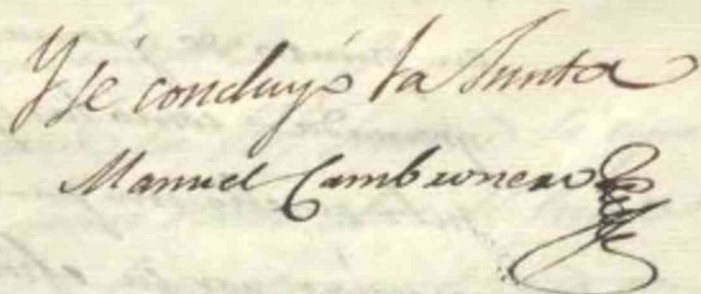 Y sé concluyó la Junta
Manuel Cambronero